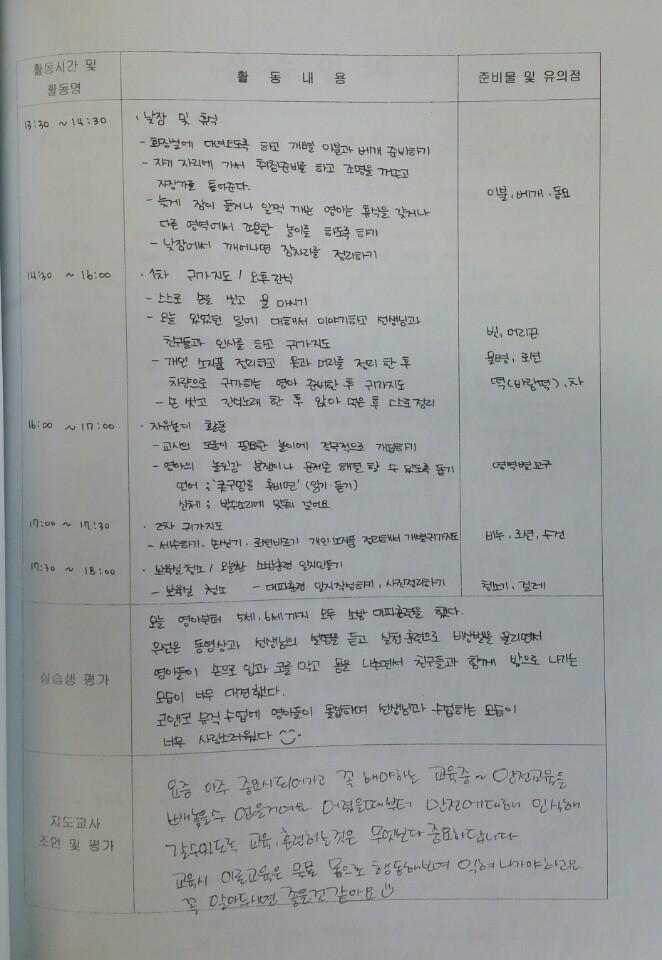 활동시간 및 활동명
활 동 내 용
준비물 및 유의점
13:30 ~ 14:30
· 낮잠 및 휴식
- 화장실에 다녀오도록 하고 개별 이불과 베개 준비하기
- 자기 자리에 가서 취침준비를 하고 조명을 끄고
자장가를 틀어준다.
- 늦게 잠이 들거나 일찍 깨는 영아는 휴식을 갖거나
다른 영역에서 조용한 놀이를 하도록 하기
- 낮잠에서 깨어나면 잠자리를 정리하기
이불, 베개, 동요
14:30 ~ 16:00
· 1차 귀가지도 / 오후간식
- 스스로 손을 씻고 물 마시기
- 오늘 있었던 일에 대해서 이야기하고 선생님과
친구들과 인사를 하고 귀가지도
- 개인 소지품 정리하고 옷과 머리를 정리 한 후
차량으로 귀가하는 영아 준비한 후 귀가지도
- 손 씻고 간식노래 한 후 앉아 먹은 후 스스로 정리
빗, 머리끈
물병, 로션
떡(바람떡), 차
16:00 ~ 17:00
· 자유놀이 활동
- 교사의 도움이 필요한 놀이에 적극적으로 개입하기
- 영아의 놀잇감 분쟁이나 문제를 해결 할 수 있도록 돕기
언어 ; '콧구멍을 후비면' (읽기·듣기)
신체 ; 박수소리에 맞춰 걸어요
영역별 교구
17:00 ~ 17:30
· 2차 귀가지도
- 세수하기, 손씻기, 로션바르기 개인 소지품 정리해서 개별귀가지도
비누, 로션, 수건
17:30 ~ 18:00
· 보육실청소 / 오늘한 소방훈련 일지만들기
- 보육실 청소 - 대피훈련 일지작성하기, 사진정리하기
청소기, 걸레
실습생 평가
오늘 영아부터 5세, 6세까지 모두 소방 대피훈련을 했다.
우선은 동영상과 선생님의 설명을 듣고 실전 훈련으로 비상벨을 울리면서
영아들이 손으로 입과 코를 막고 몸을 낮추면서 친구들과 함께 밖으로 나가는
모습이 너무 대견했다.
코앤코 뮤직 수업에 영아들이 몰입하며 선생님과 수업하는 모습이
너무 사랑스러웠다
지도교사 조언 및 평가
요즘 아주 중요시되어가고 꼭 해야하는 교육중~ 안전교육을
빼놓을수 없을거예요 어렸을때부터 안전에대해 인식해
갈수있도록 교육, 훈련하는것은 무엇보다 중요하답니다.
교육시 이론교육은 물론 몸으로 행동해보며 익혀 나가야하고요
꼭 알아두시면 좋을것 같아요